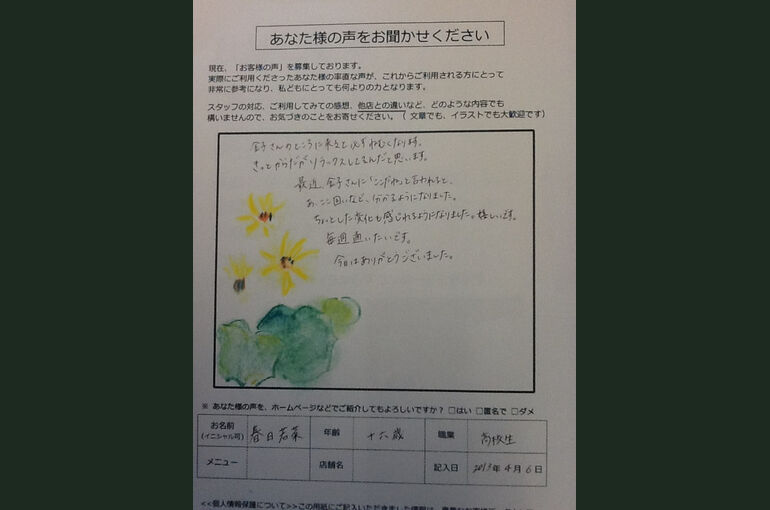 あなた様の声をお聞かせください
現在、「お客様の声」を募集しております。
実際にご利用くださったあなた様の率直な声が、これからご利用される方にとって
非常に参考になり、私どもにとっても何よりの力となります。
スタッフの対応、ご利用してみての感想、他店との違いなど、どのような内容でも
構いませんので、お気づきのことをお寄せください。（ 文章でも、イラストでも大歓迎です）
金子さんのところに来ると必ずねむくなります。
きっとからだがリラックスしてるんだと思います。
最近、金子さんに「ここだね」と言われると、
あ、ここ固いなど、分かるようになりました。
ちょっとした変化も感じれるようになりました。嬉しいです。
毎週通いたいです。
今日はありがとうございました。
※ あなた様の声を、ホームページなどでご紹介してもよろしいですか？ □はい □匿名で □ダメ
お名前 (イニシャル可) 春日若菜 年齢 十六歳 職業 高校生
メニュー 店舗名 記入日 2013年 4月 6日
<<個人情報保護について>>この用紙にご記入いただきました情報は、